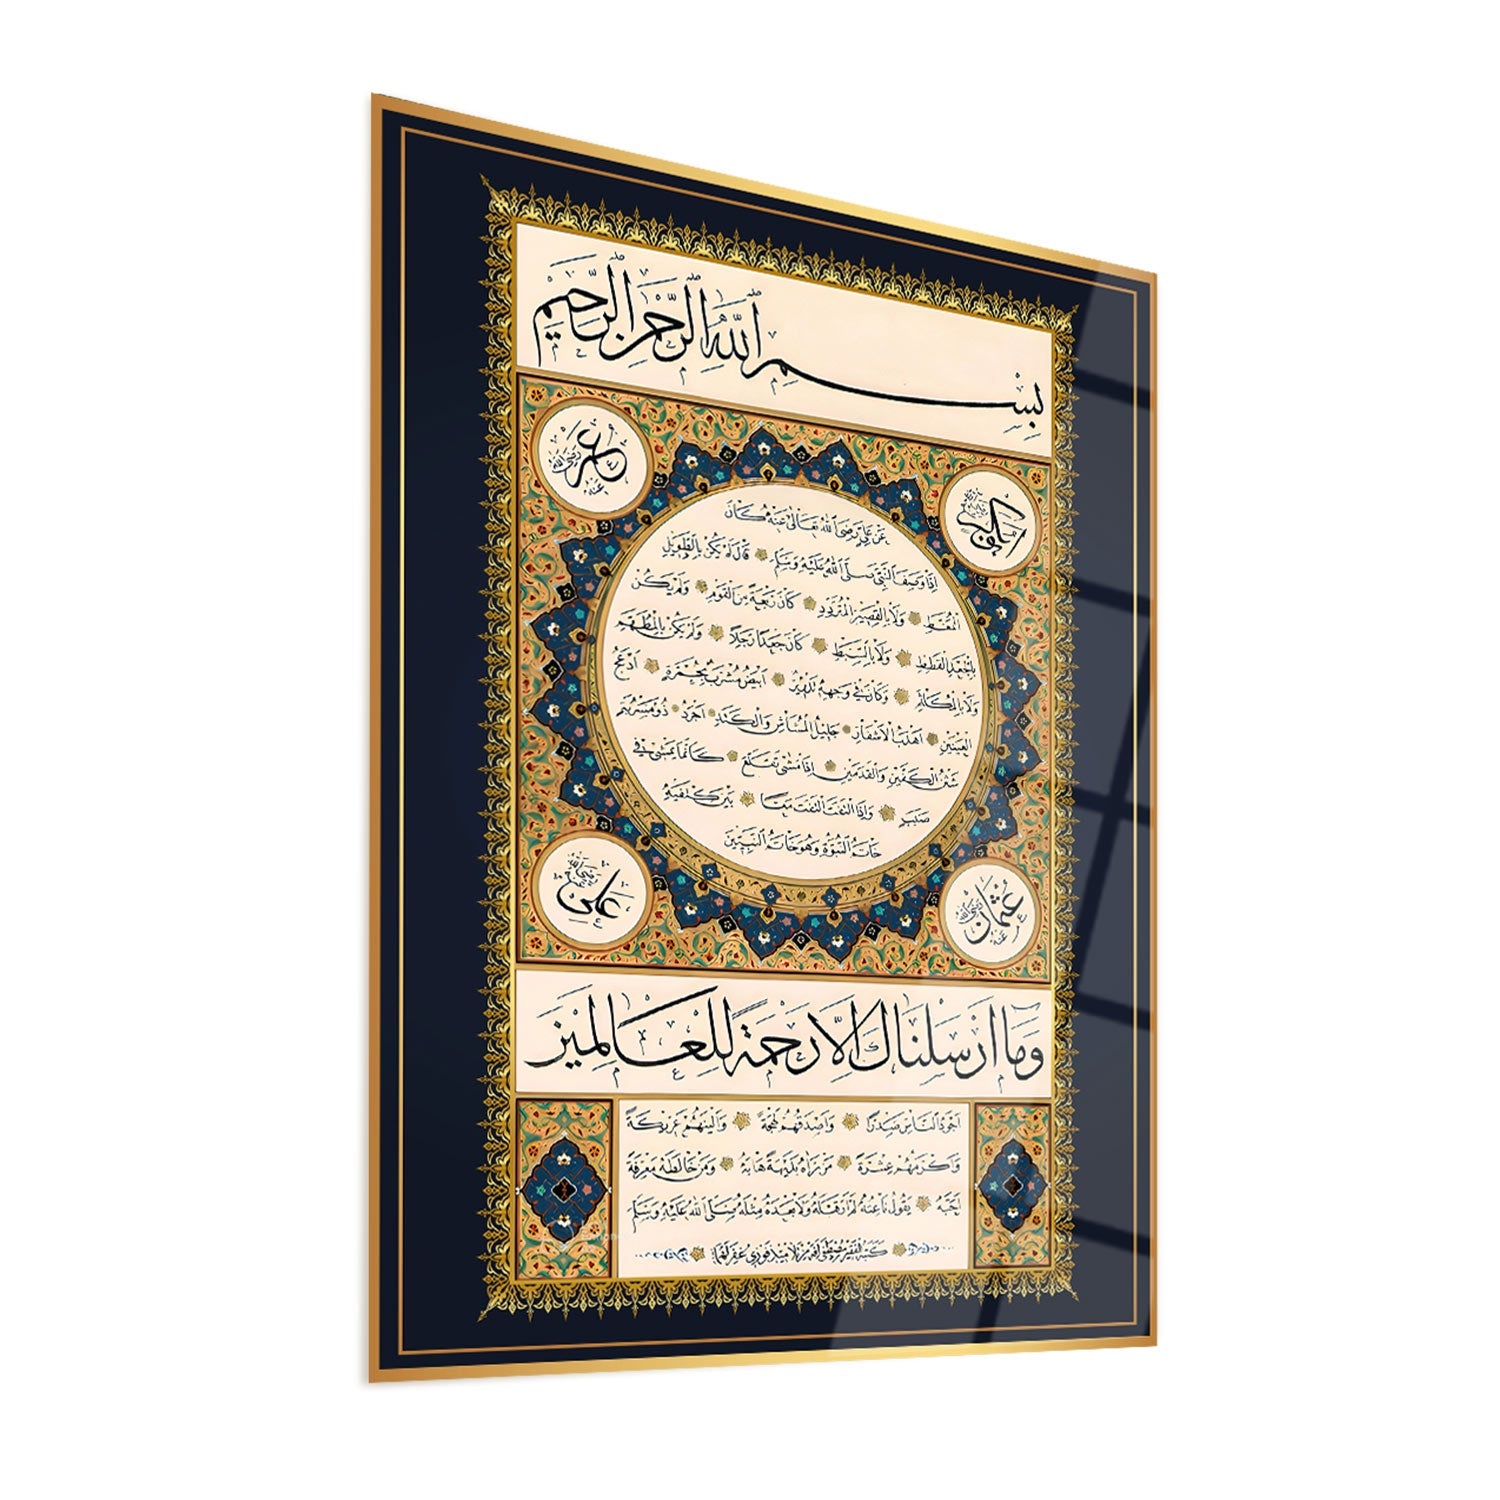 بِسْمِ اللهِ الرَّحْمٰنِ الرَّحِيمِ
ابوبكر رضي الله عنه
عمر رضي الله عنه
عَنْ عَلِيٍّ رَضِيَ اللهُ تَعَالٰى عَنْهُ كَانَ
اِذَا وَصَفَ النَّبِيَّ صَلَّى اللهُ عَلَيْهِ وَسَلَّمَ قَالَ لَمْ يَكُنْ بِالطَّوِيلِ
الْمُمَغَّطِ وَلَا بِالْقَصِيرِ الْمُتَرَدِّدِ كَانَ رَبْعَةً مِنَ الْقَوْمِ وَلَمْ يَكُنْ
بِالْجَعْدِ الْقَطَطِ وَلَا بِالسَّبْطِ كَانَ جَعْدًا رَجِلًا وَلَمْ يَكُنْ بِالْمُطَهَّمِ
وَلَا بِالْمُكَلْثَمِ وَكَانَ فِي وَجْهِهِ تَدْوِيرٌ اَبْيَضُ مُشْرَبٌ بِحُمْرَةٍ اَدْعَجُ
الْعَيْنَيْنِ اَهْدَبُ الْاَشْفَارِ جَلِيلُ الْمُشَاشِ وَالْكَتَدِ اَجْرَدُ ذُو مَسْرُبَةٍ
شَثْنُ الْكَفَّيْنِ وَالْقَدَمَيْنِ اِذَا مَشٰى تَقَلَّعَ كَاَنَّمَا يَمْشِي فِي
صَبَبٍ وَاِذَا الْتَفَتَ الْتَفَتَ مَعًا بَيْنَ كَتِفَيْهِ
خَاتَمُ النُّبُوَّةِ وَهُوَ خَاتَمُ النَّبِيِّينَ
عثمان رضي الله عنه
علي رضي الله عنه
وَمَا اَرْسَلْنَاكَ اِلَّا رَحْمَةً لِلْعَالَمِينَ
اَجْوَدُ النَّاسِ صَدْرًا وَاَصْدَقُهُمْ لَهْجَةً وَاَلْيَنُهُمْ عَرِيكَةً
وَاَكْرَمُهُمْ عِشْرَةً مَنْ رَاٰهُ بَدِيهَةً هَابَهُ وَمَنْ خَالَطَهُ مَعْرِفَةً
اَحَبَّهُ يَقُولُ نَاعِتُهُ لَمْ اَرَ قَبْلَهُ وَلَا بَعْدَهُ مِثْلَهُ صَلَّى اللهُ عَلَيْهِ وَسَلَّمَ
كتبه الفقير مصطفى من تلاميذ فوزي غفر لهما